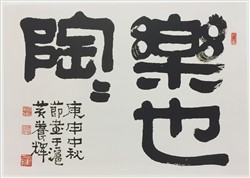 樂也
陶〻
庚申中秋
節書于滬
黃養輝